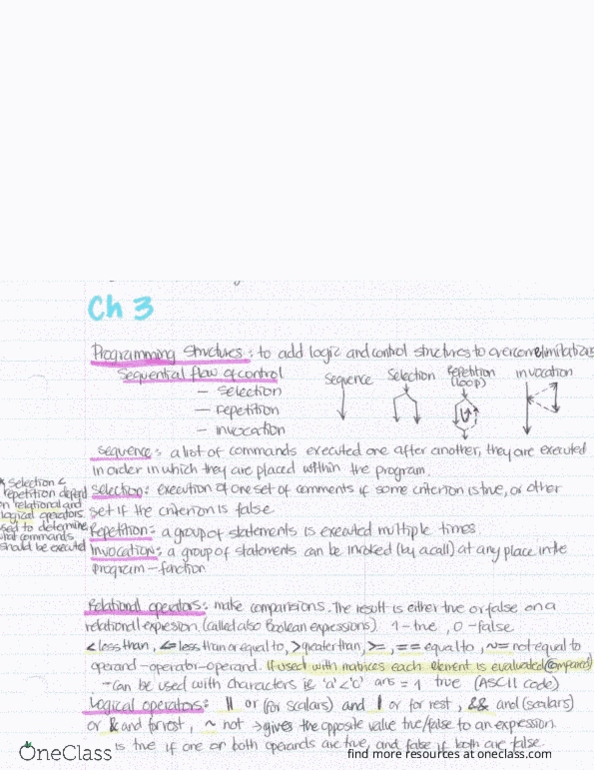 Ch 3
Programming Structures: to add logic and control structures to overcome limitations
Sequential flow of control
Sequence Selection Repetition (loop) invocation
— selection
— repetition
— invocation
Sequence: a list of commands executed one after another, they are executed
in order in which they are placed within the program.
* Selection &
repetition depend
on relational and
logical operators
used to determine
what commands
should be executed
Selection: execution of one set of comments if some criterion is true, or other
set if the criterion is false
Repetition: a group of statements is executed multiple times.
Invocation: a group of statements can be invoked (by a call) at any place in the
program - function
Relational operators: make comparisions. The result is either true or false on a
relational expression. (called also Boolean expressions) 1-true, 0-false
< less than, <= less than or equal to, > greater than, >=, == equal to, ~= not equal to
operand-operator-operand. If used with matrices each element is evaluated (compared)
- Can be used with characters ie 'a'<'c' ans = 1 true (ASCII code)
Logical operators: || or (for scalars) and | or for rest, && and (scalars)
or & and for rest, ~ not → gives the opposite value true/false to an expression.
is true if one or both operands are true, and false if both are false
OneClass
find more resources at oneclass.com